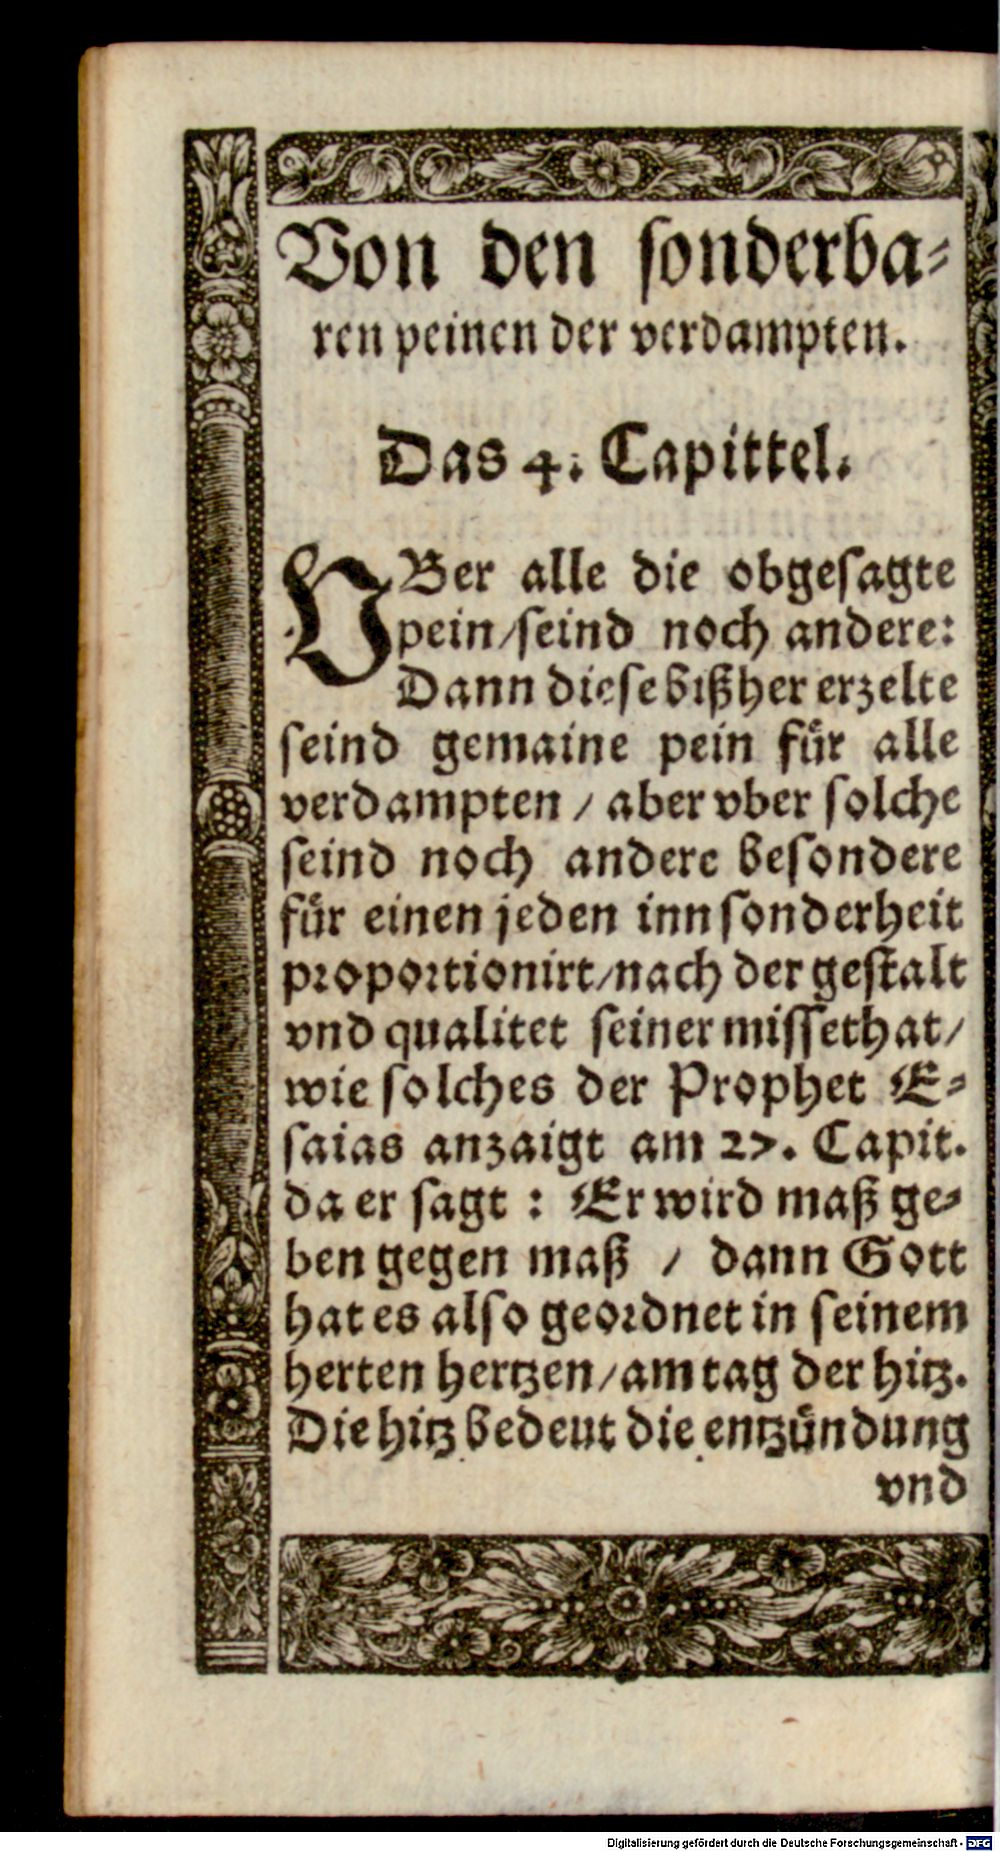 Von den sonderba-
ren peinen der verdampten.
Das 4. Capittel.
VBer alle die obgesagte
pein/seind noch andere:
Dann diese bißher erzelte
seind gemaine pein für alle
verdampten / aber vber solche
seind noch andere besondere
für einen jeden inn sonderheit
proportionirt/nach der gestalt
vnd qualitet seiner missethat/
wie solches der Prophet E-
saias anzaigt am 27. Capit.
da er sagt : Er wird maß ge-
ben gegen maß / dann Gott
hat es also geordnet in seinem
herten hertzen/am tag der hitz.
Die hitz bedeut die entzündung
vnd
Digitalisierung gefördert durch die Deutsche Forschungsgemeinschaft - DFG